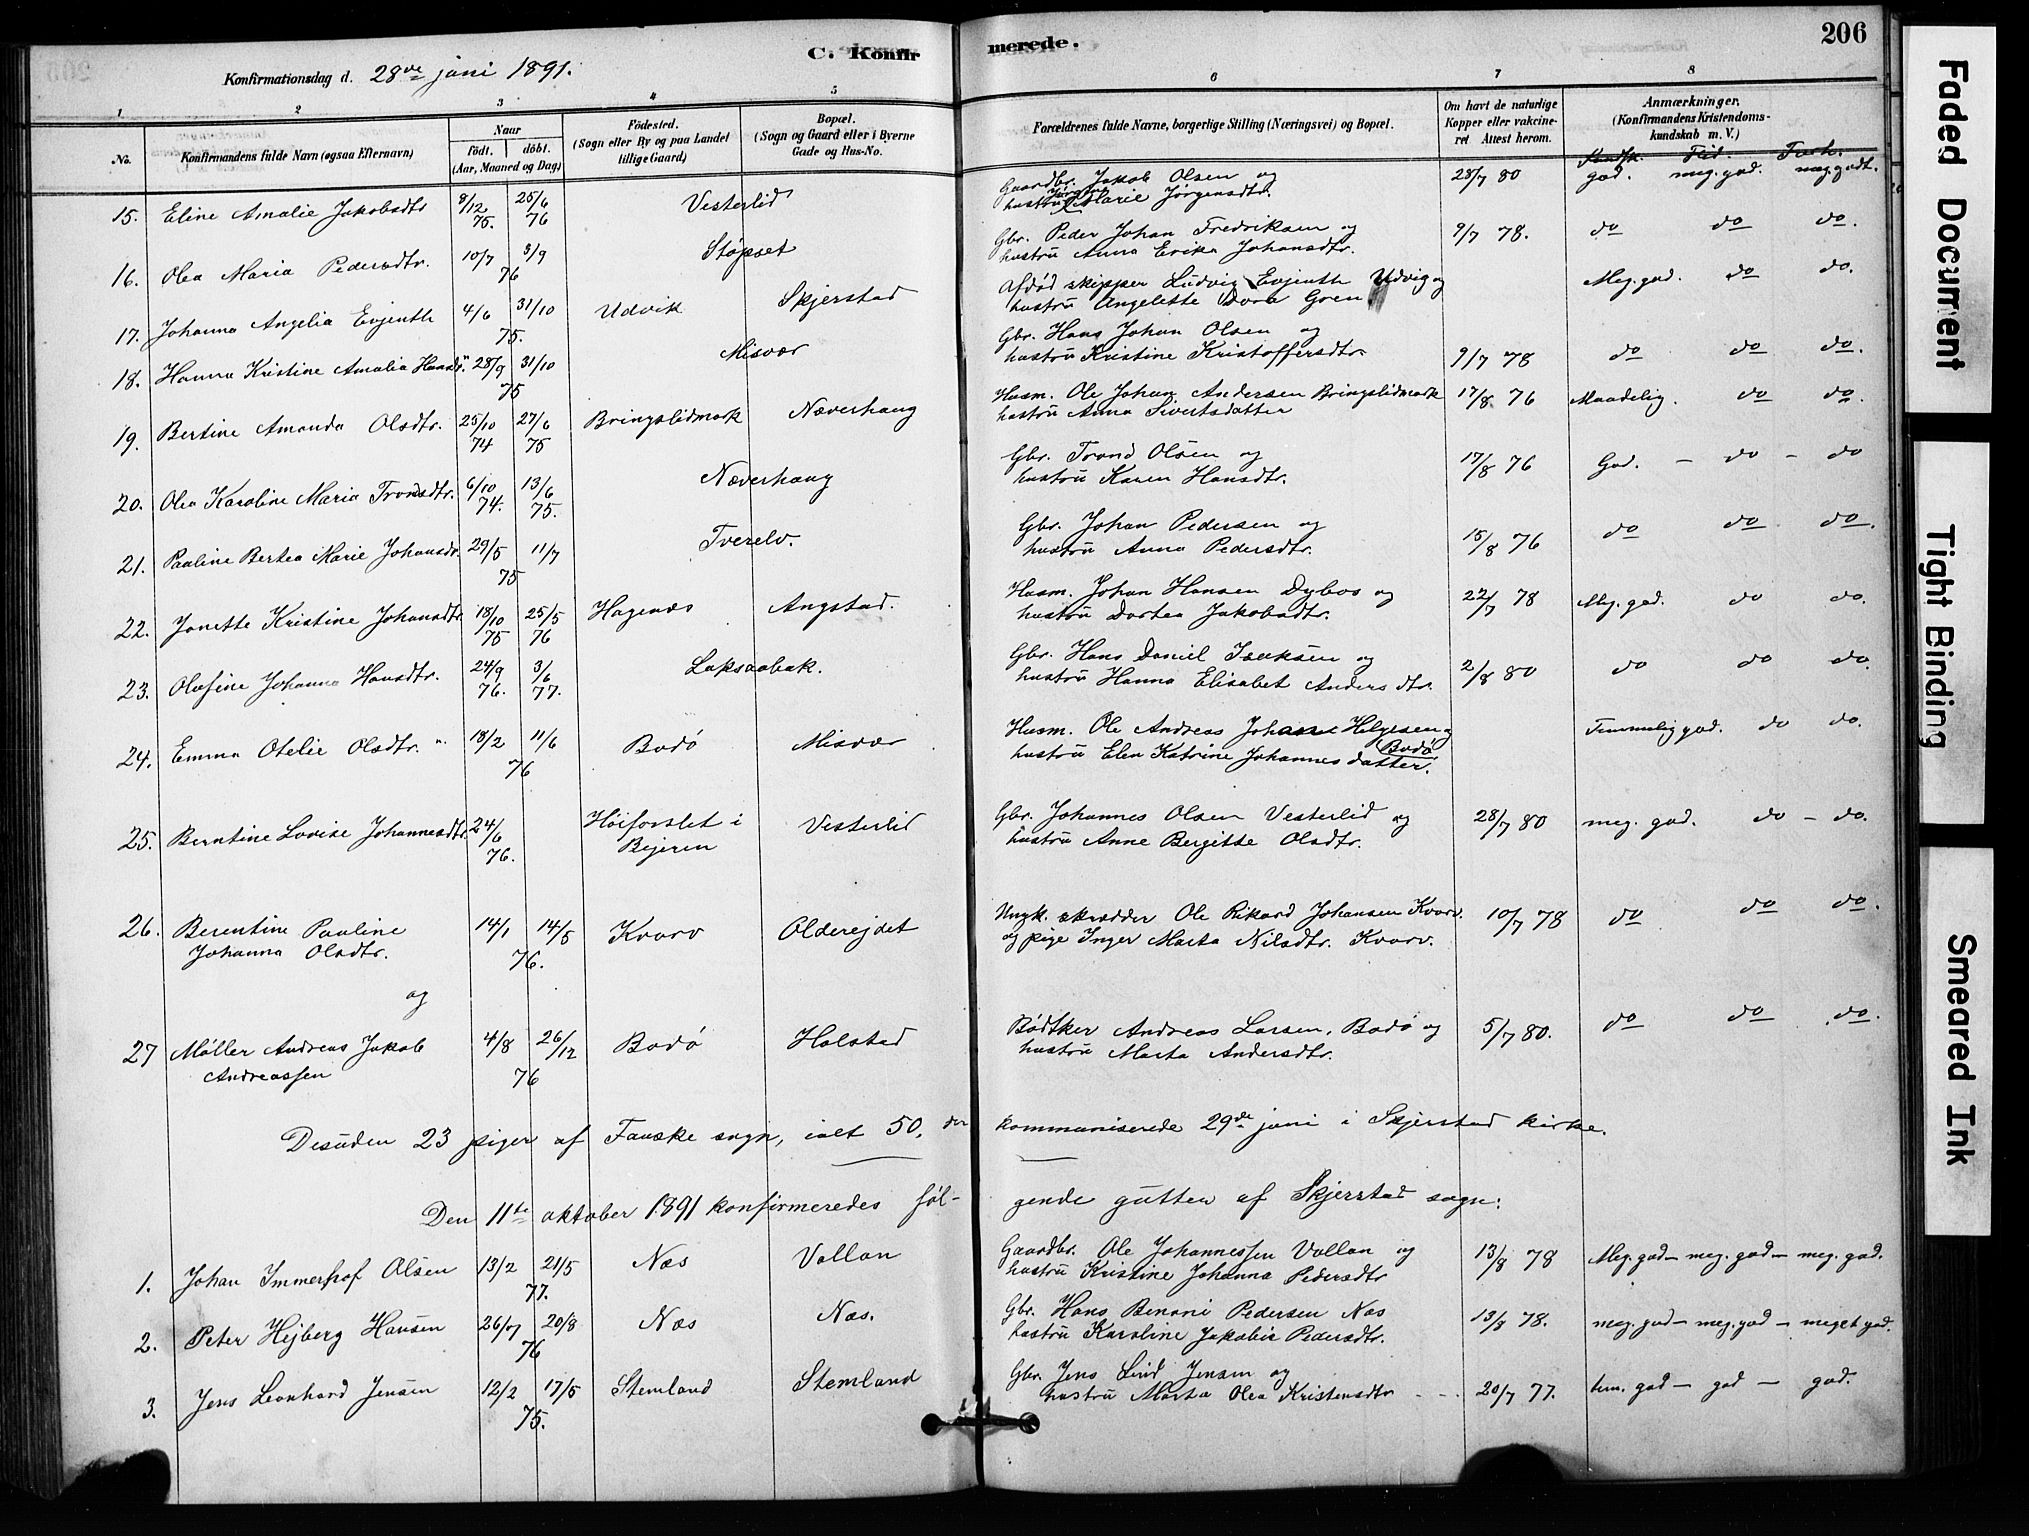 206
C. Konfir merede.
Konfirmationsdag d. 28de juni 1891.
1 2 3 4 5 6 7 8
No.
Konfirmandens fulde Navn (ogsaa Efternavn)
Naar
født. døbt.
(Aar, Maaned og Dag)
Fødested.
(Sogn eller By og paa Landet
tillige Gaard)
Bopæl.
(Sogn og Gaard eller i Byerne
Gade og Hus-No.
Forældrenes fulde Navne, borgerlige Stilling (Næringsvei) og Bopæl.
Om havt de naturlige
Kopper eller vakcine-
ret Attest herom.
Anmærkninger.
(Konfirmandens Kristendoms-
kundskab m. V.)
Kundsk. Flid. Forh.
15. Eline Amalie Jakobsdtr 8/12 75. 25/6 76 Vesterlid Gaardbr. Jakob Olsen og 28/7 80 god. meg. god. meg. godt.
hustru Marie Jørgensdtr.
16. Olea Maria Pedersdtr. 10/7 3/9 76 Støpset Gbr. Peder Johan Fredriksen og 9/7 78. do do do.
hustru Anna Erika Johansdtr.
17. Johanna Angelia Evjenth 4/6 31/10 75. Udvik Skjerstad Afdød skipper Ludvig Evjenth Udvig og Meg. god. do do.
hustru Angelette Dorb Gren
18. Hanna Kristine Amalia Hansd". 28/9 31/10 75 Misvær Gbr. Hans Johan Olsen og
hustru Kristine Kristoffersdtr. 9/7 78 do do do.
19. Bertine Amanda Olsdtr. 25/10 74 27/6 75 Bringslidmark Næverhaug Husm. Ole Johan Andersen Bringslidmark 17/8 76 Maadelig. do do.
hustru Anna Sivertsdatter
20. Olea Karoline Maria Tronsdtr. 6/10 74. 13/6 75. Næverhaug Gbr. Trond Olsen og 17/8 76 God. - do - do
hustru Karen Hansdtr.
21. Pauline Bertea Marie Johansdr. 29/5 11/7 75 Tverelv. Gbr. Johan Pedersen og 15/8 76 do do do.
hustru Anna Pedersdtr.
22. Jonette Kristine Johansdtr. 18/10 75 25/5 76 Hagenæs Angstad. Husm. Johan Hansen Dybos og 22/7 78 Meg. god. do do.
hustru Dortea Jakobsdtr.
23. Olufine Johanna Hansdtr. 24/9 76. 3/6 77. Laksaabak. Gbr. Hans Daniel Isaksen og 2/8 80 do do do.
hustru Hanna Elisabet Andersdtr.
24. Emma Otelie Olsdtr. 18/2 11/6 76 Bodø Misvær Husm. Ole Andreas Johan Helgesen og Temmelig god. do do.
hustru Elen Katrine Johannesdatter. Bodø
25. Berntine Lovise Johannesdtr. 24/6 76. Høiforslet i Vesterlid Gbr. Johannes Olsen Vesterlid og 28/7 80 meg. god. do - do.
Bejeren hustru Anne Bergitte Olsdtr.
26. Berentine Pauline 14/1 14/5 76. Kvarv Olderejdet Ungk. skrædder Ole Rikard Johansen Kvarv. 10/7 78 do do do.
Johanna Olsdtr. og pige Inger Marta Nilsdtr. Kvarv.
og
27 Møller Andreas Jakob 4/8 26/12 76 Bodø Halstad Bødtker Andreas Larsen, Bodø og 5/7 80. do do do.
Andreassen hustru Marta Andersdtr.
Desuden 23 piger af Fauske sogn, ialt 50, der kommuniserede 29de juni i Skjerstad kirke.
Den 11te oktober 1891 konfirmeredes føl- gende gutter af Skjerstad sogn:
1. Johan Immerfrof Olsen 13/2 21/5 77. Næs Vollan Gaardbr. Ole Johannessen Vollan og 13/8 78 Meg. god - meg. god - meg. god.
hustru Kristine Johanna Pedersdtr
2. Peter Hejberg Hansen 26/7 20/8 76 Næs Næs. Gbr. Hans Benoni Pedersen Næs 13/8 78. meg. god - meg. god - meget god.
hustru Karoline Jakobie Pedersdtr.
3. Jens Leonhard Jensen 12/2 17/5 75. Stemland Stemland Gbr. Jens Lind Jensen og
hustru Marta Olea Kristensdtr 20/7 77. tem. god - god - god.
Faded Document
Tight Binding
Smeared Ink